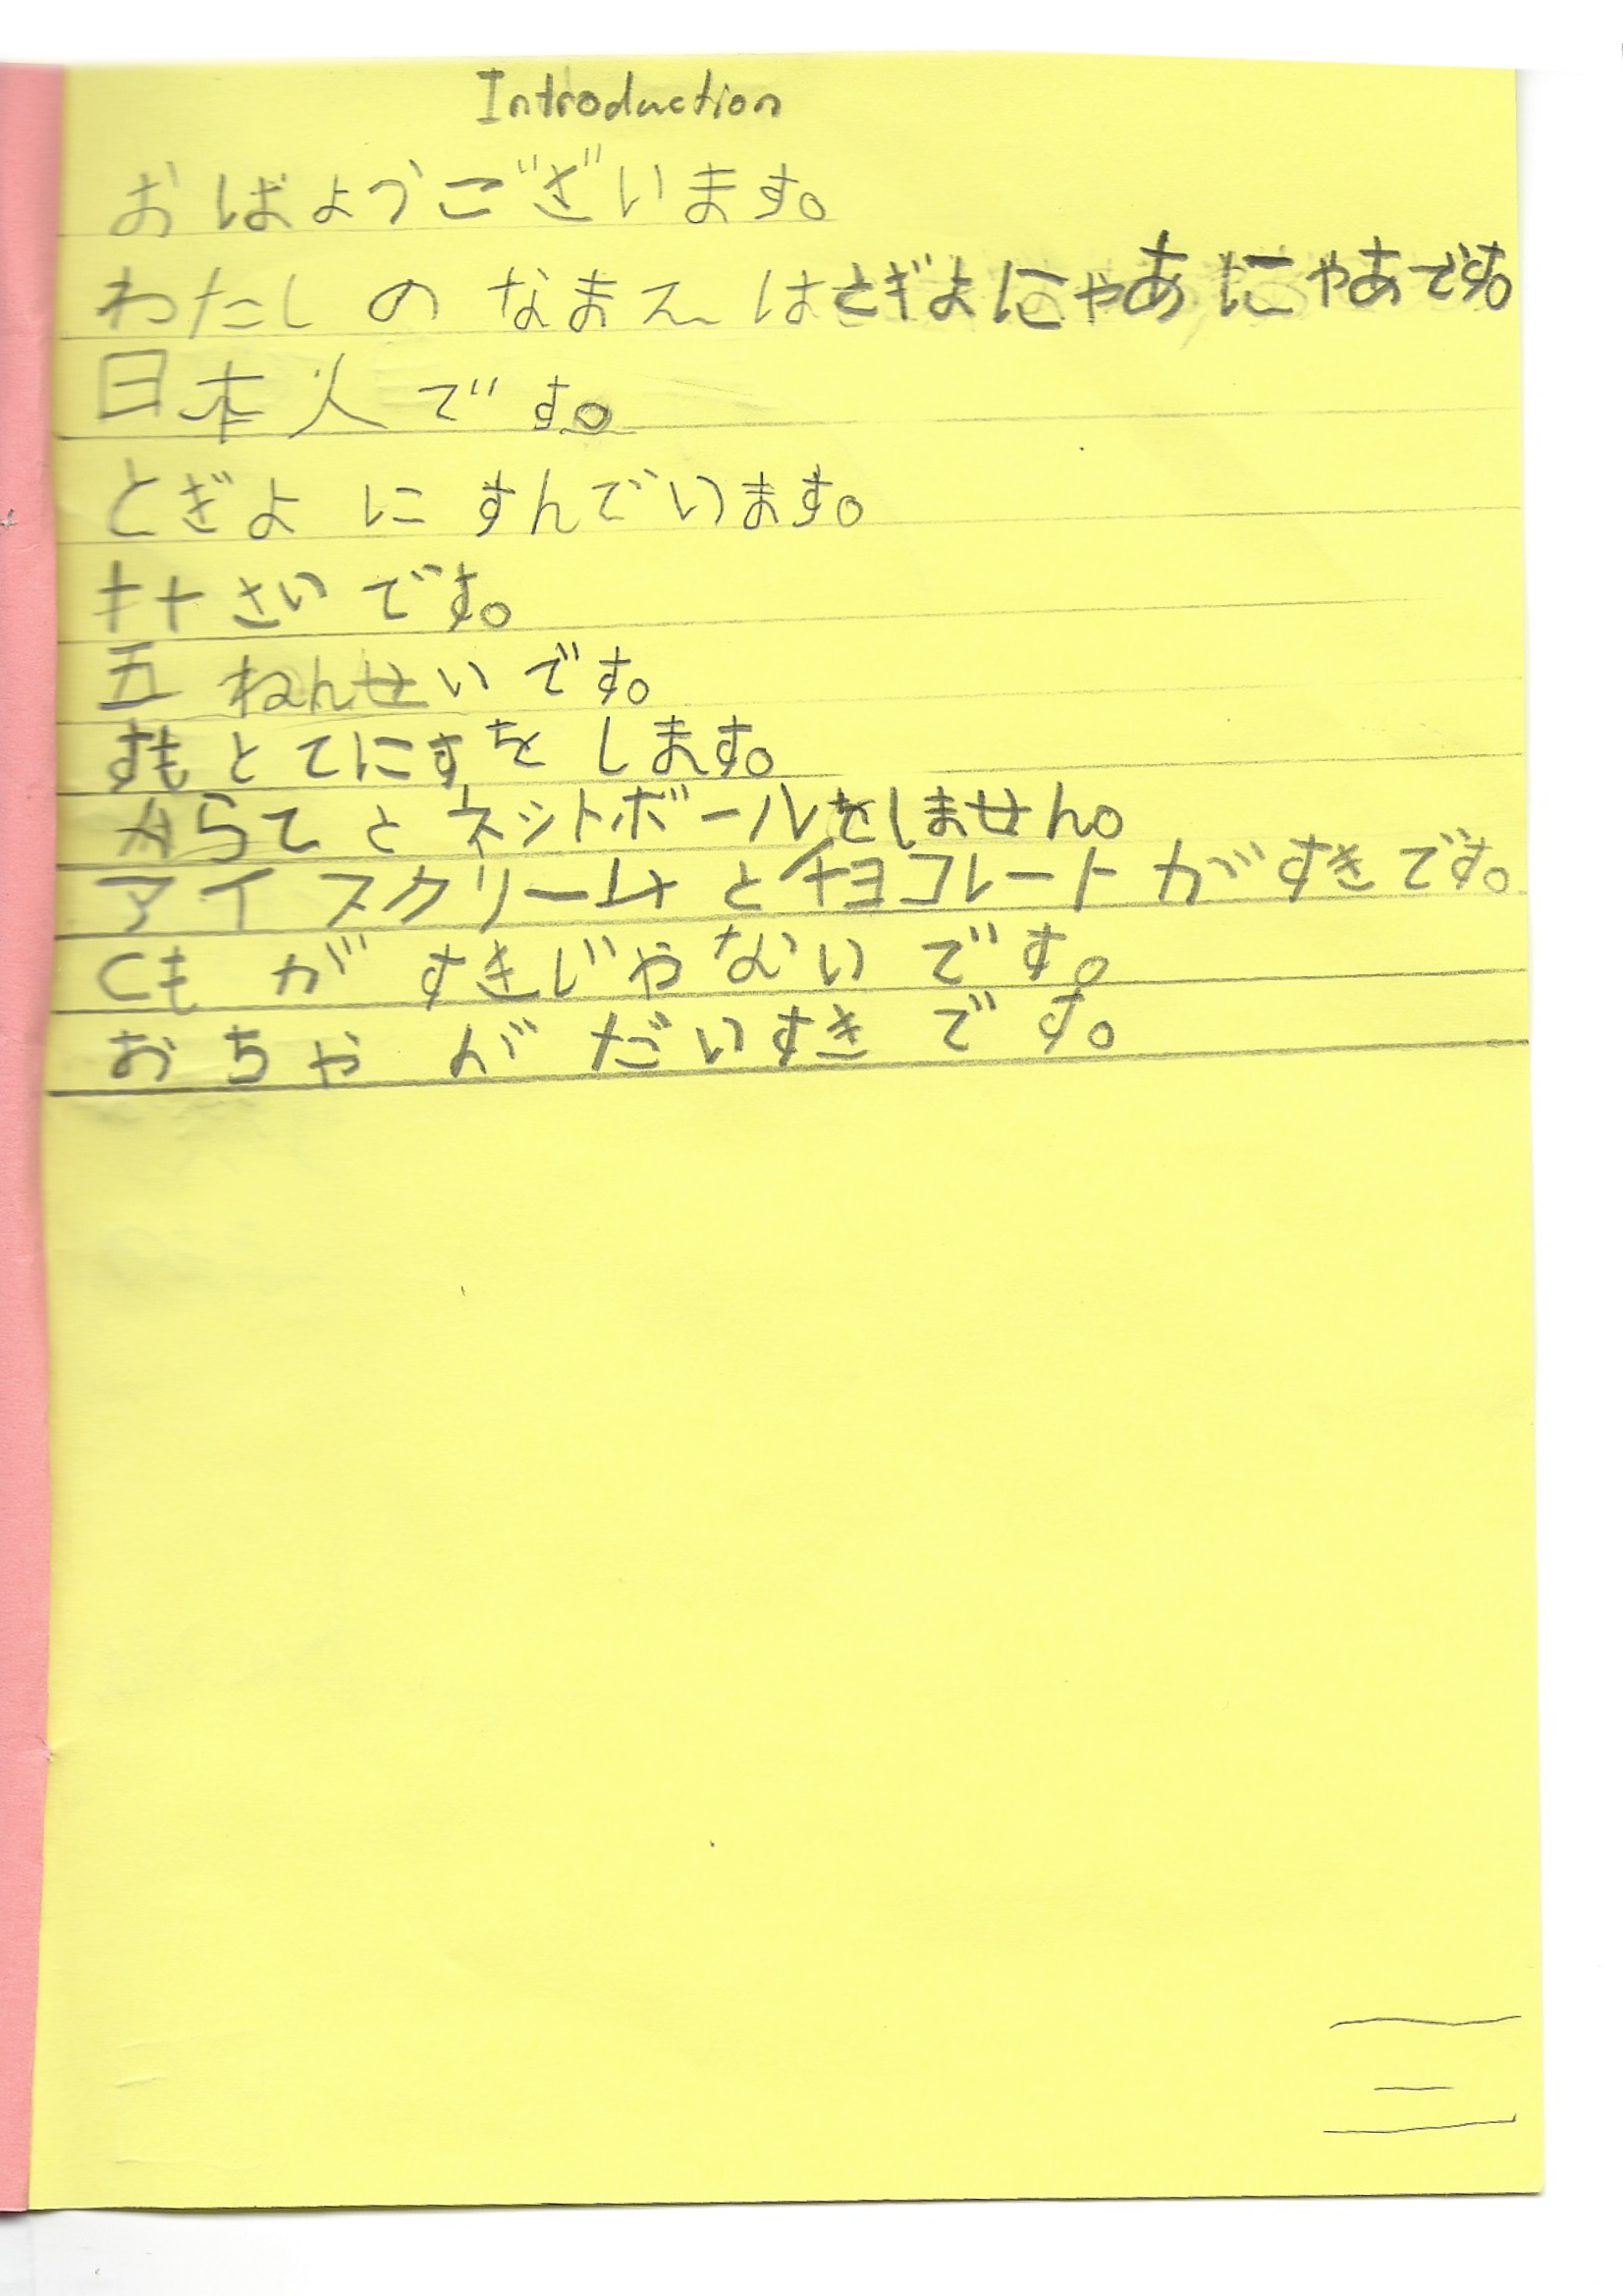 Introduction
おばようございます。
わたしのなまえはとぎよにゃあにゃあです。
日本人です。
とぎよにすんでいます。
十十さいです。
五ねんせいです。
すもとてにすをします。
からてとネットボールをしません。
アイスクリームとチョコレートがすきです。
くもがすきじゃないです。
おちゃがだいすきです。
三